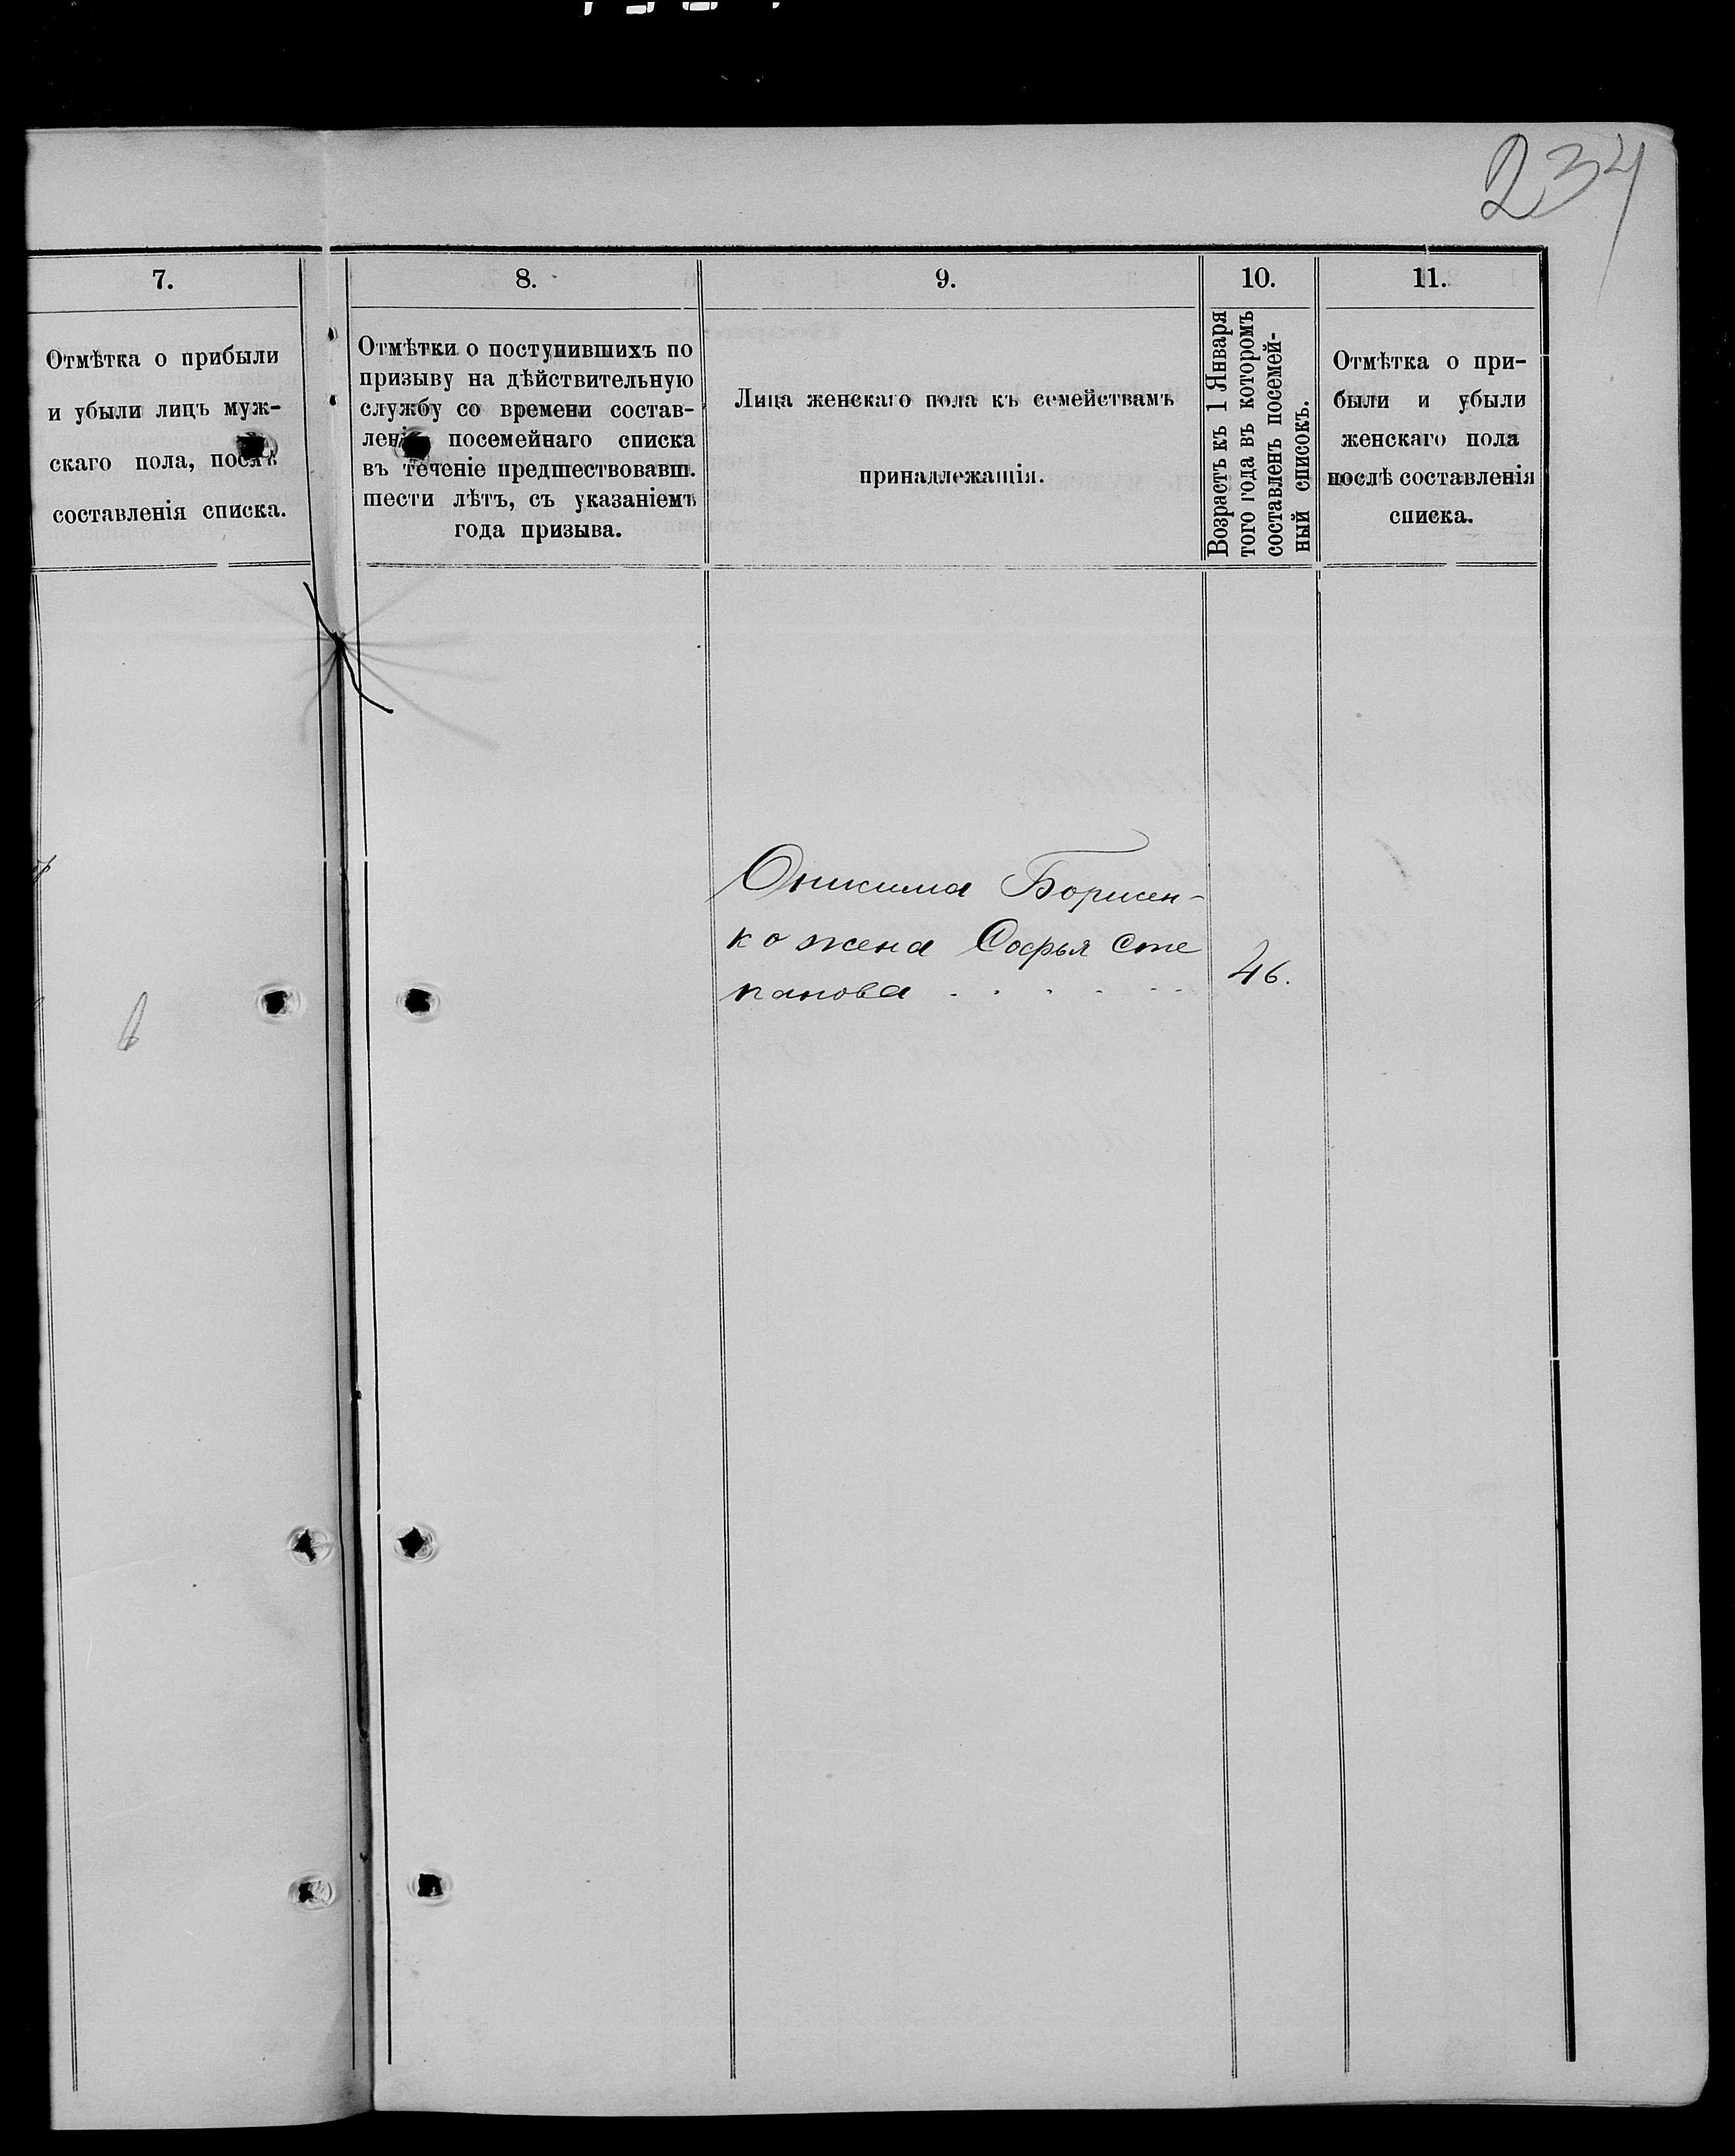 234
7.
8.
9.
10.
11.
Отмѣтка о прибыли
и убыли лицъ муж-
скаго пола, послѣ
составленія списка.
Отмѣтки о поступившихъ по
призыву на дѣйствительную
службу со времени состав-
ленія посемейнаго списка
въ теченіе предшествовавш.
шести лѣтъ, съ указаніемъ
года призыва.
Лица женскаго пола къ семействамъ
принадлежащія.
Возрастъ къ 1 Января
того года въ которомъ
составленъ посемей-
ный списокъ.
Отмѣтка о при-
были и убыли
женскаго пола
послѣ составленія
списка.
Оникима Борисен-
ко жена Софья Сте
панова . . . . . .
46.